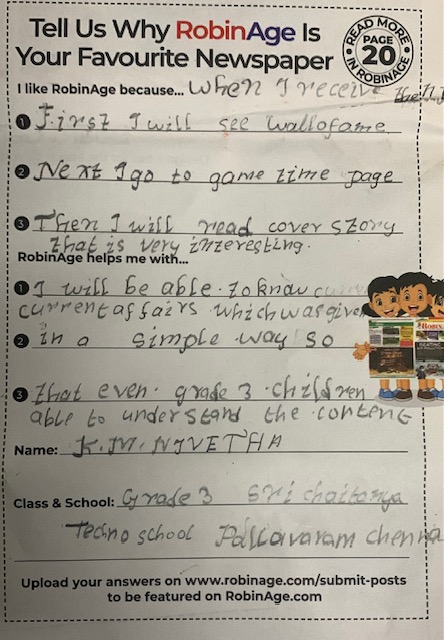 Tell Us Why RobinAge Is
Your Favourite Newspaper
READ MORE
PAGE
20
IN ROBINAGE
I like RobinAge because... when I receive
1 First I will see wallofame
2 Next I go to game time page
3 Then I will read cover story
that is very interesting.
RobinAge helps me with...
1 I will be able to know
current affairs which was given
2 in a simple way so
3 that even grade 3 children
able to understand the content
Name: K.M. NIVETHA
Class & School: Grade 3 Sri chaitanya
Techno school Pallavaram chenna
Upload your answers on www.robinage.com/submit-posts
to be featured on RobinAge.com